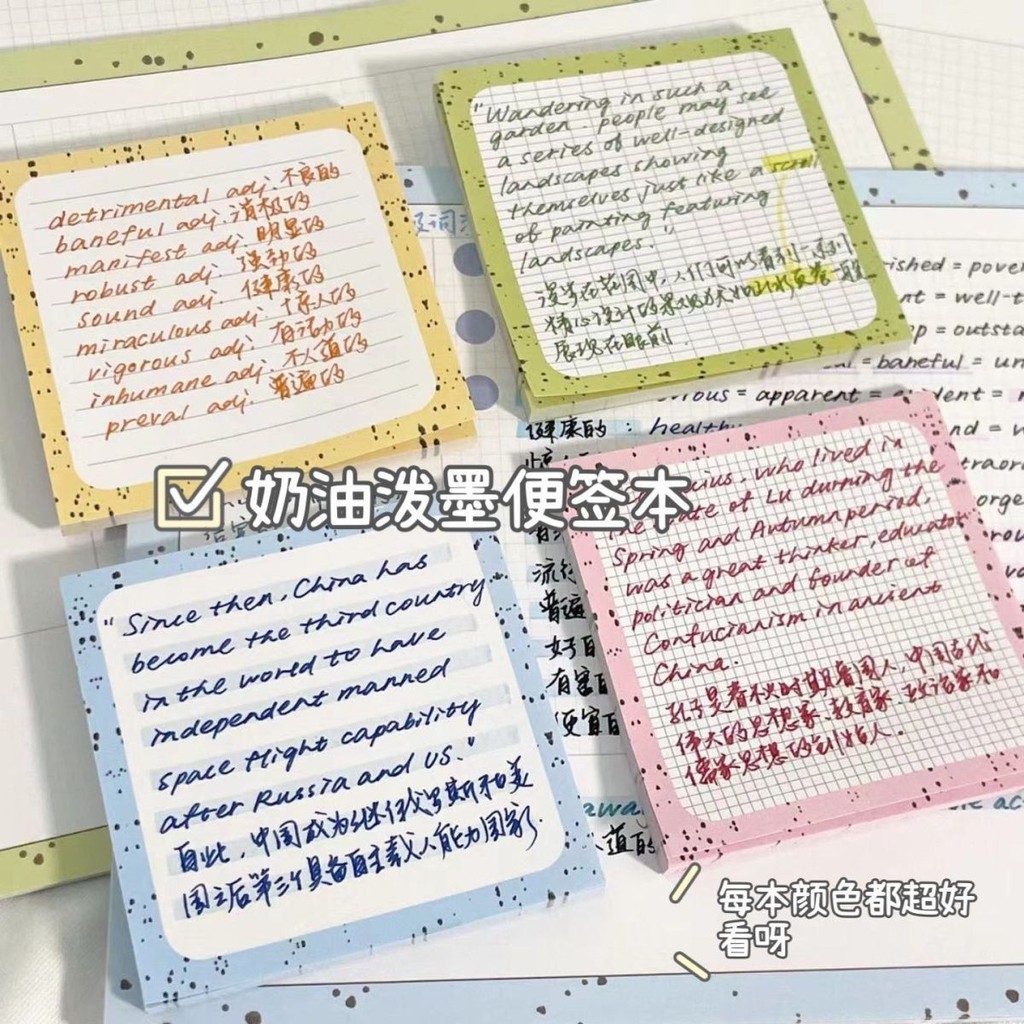 detrimental adj. 不良的
baneful adj. 消极的
manifest adj. 明显的
robust adj. 强劲的
sound adj. 健康的
miraculous adj. 惊人的
vigorous adj. 有活力的
inhumane adj. 不人道的
preval adj. 普遍的
"Wandering in such a
garden. people may see
a series of well-designed
landscapes showing
themselves just like a scroll
of painting featuring
landscapes."
漫步在花园中,人们可以看到一系列
精心设计的景观
展现在眼前.
奶油泼墨便签本
"Since then, China has
become the third country
in the world to have
independent manned
space flight capability
after Russia and US."
自此,中国成为继俄罗斯和美
国之后第三个具备自主载人能力国家.
who lived in
the state of Lu durning the
Spring and Autumn period,
was a great thinker, educator
politician and founder of
Confucianism in ancient
China.
孔子是春秋时期鲁国人,中国古代
伟大的思想家、教育家、政治家和
儒家思想的创始人.
= pover
= well-t
= outsta
= baneful = un
= apparent =
健康的: healthy
普遍
有害
便宜
每本颜色都超好
看呀